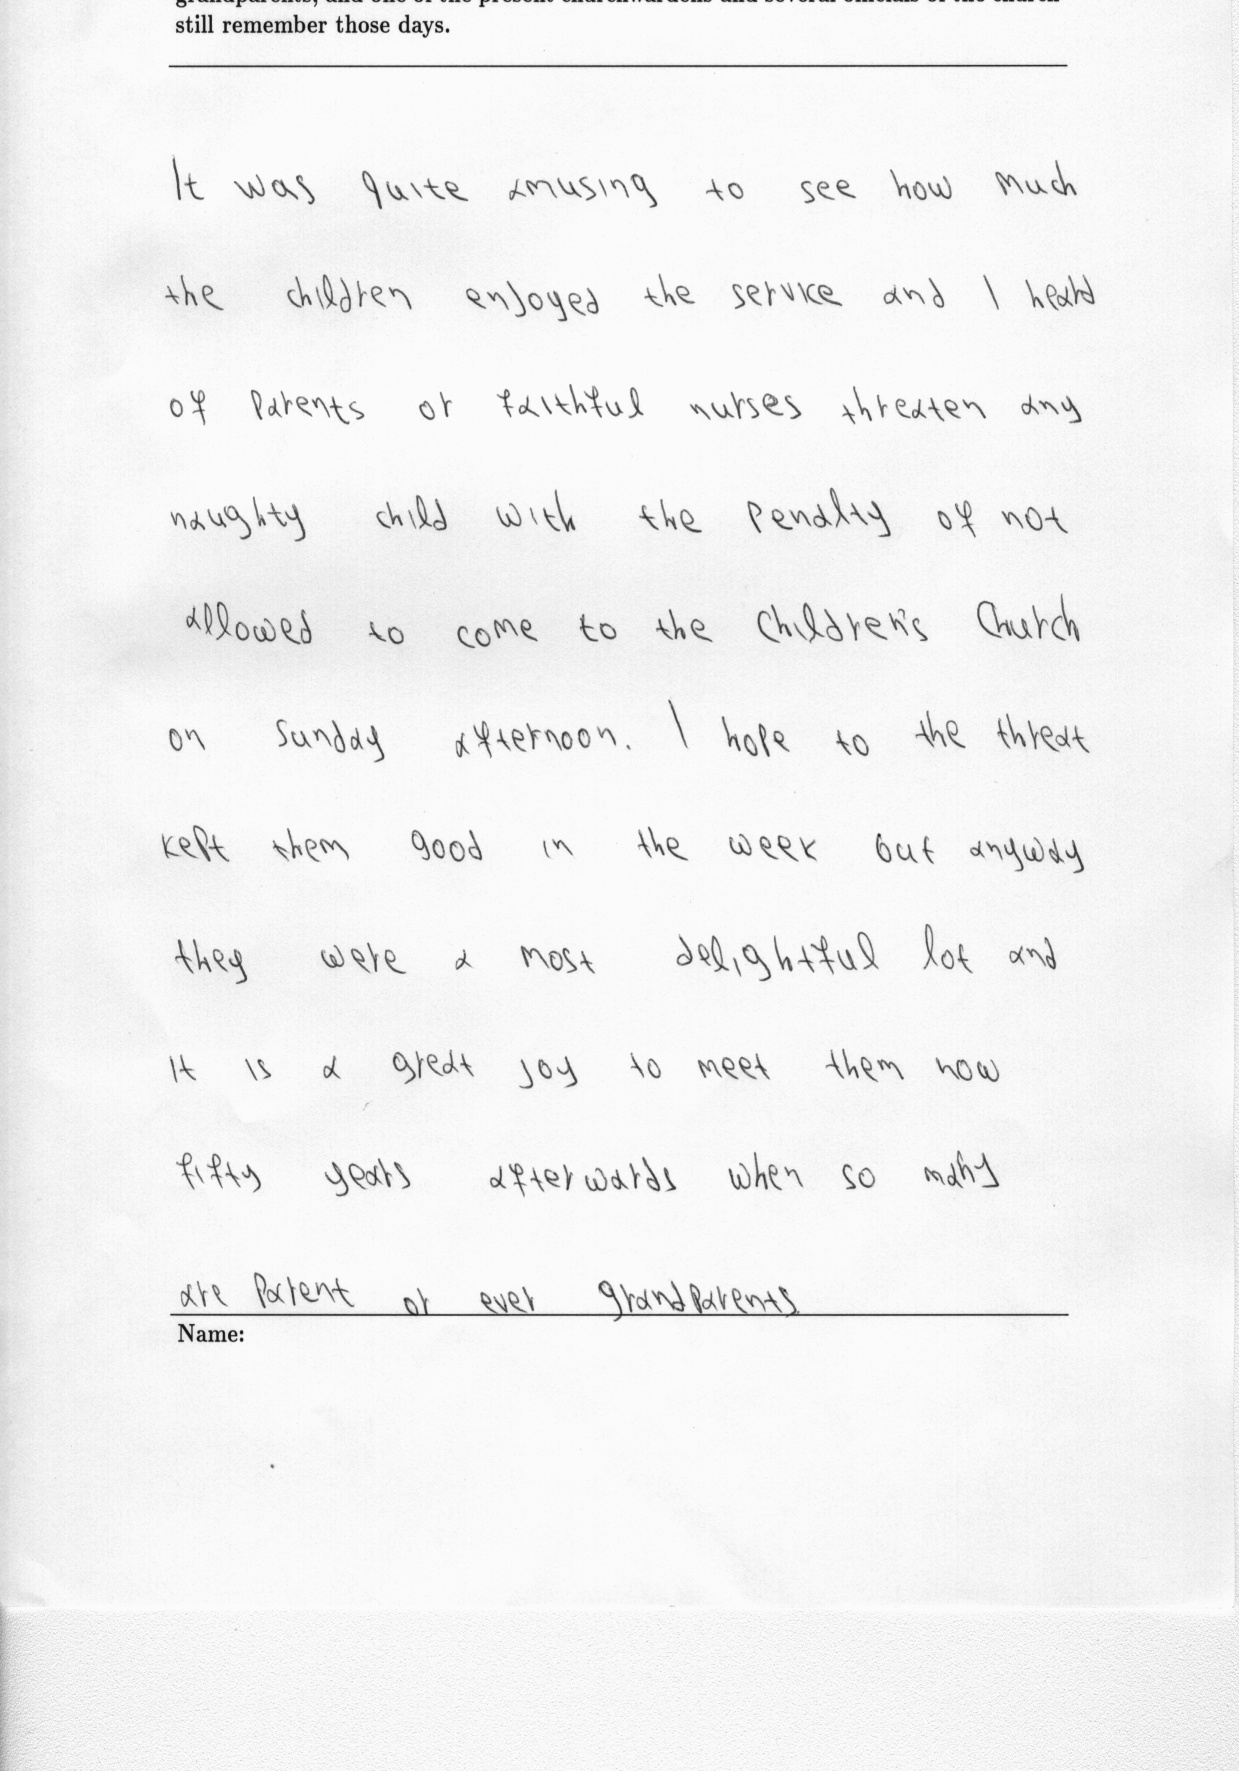 still remember those days.
It was quite amusing to see how much
the children enjoyed the service and I heard
of parents or faithful nurses threaten any
naughty child with the penalty of not
allowed to come to the Children's Church
on Sunday afternoon. I hope to the threat
kept them good in the week but anyway
they were a most delightful lot and
It is a great joy to meet them now
fifty years afterwards when so many
are parent or ever grandparents
Name: